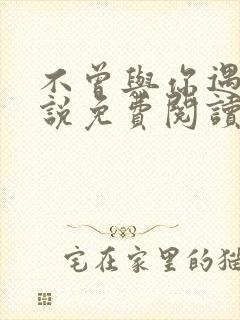 不曾與你遇
說免費閱讀
宅在家里的猫